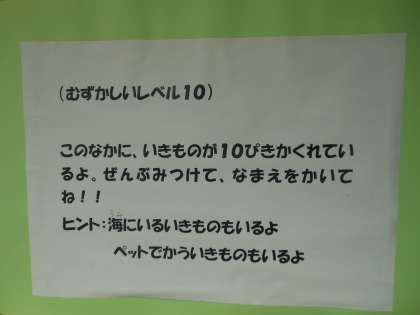 (むずかしいレベル10)
このなかに、いきものが10ぴきかくれてい
るよ。ぜんぶみつけて、なまえをかいて
ね!!
ヒント:海にいるいきものもいるよ
ペットでかういきものもいるよ